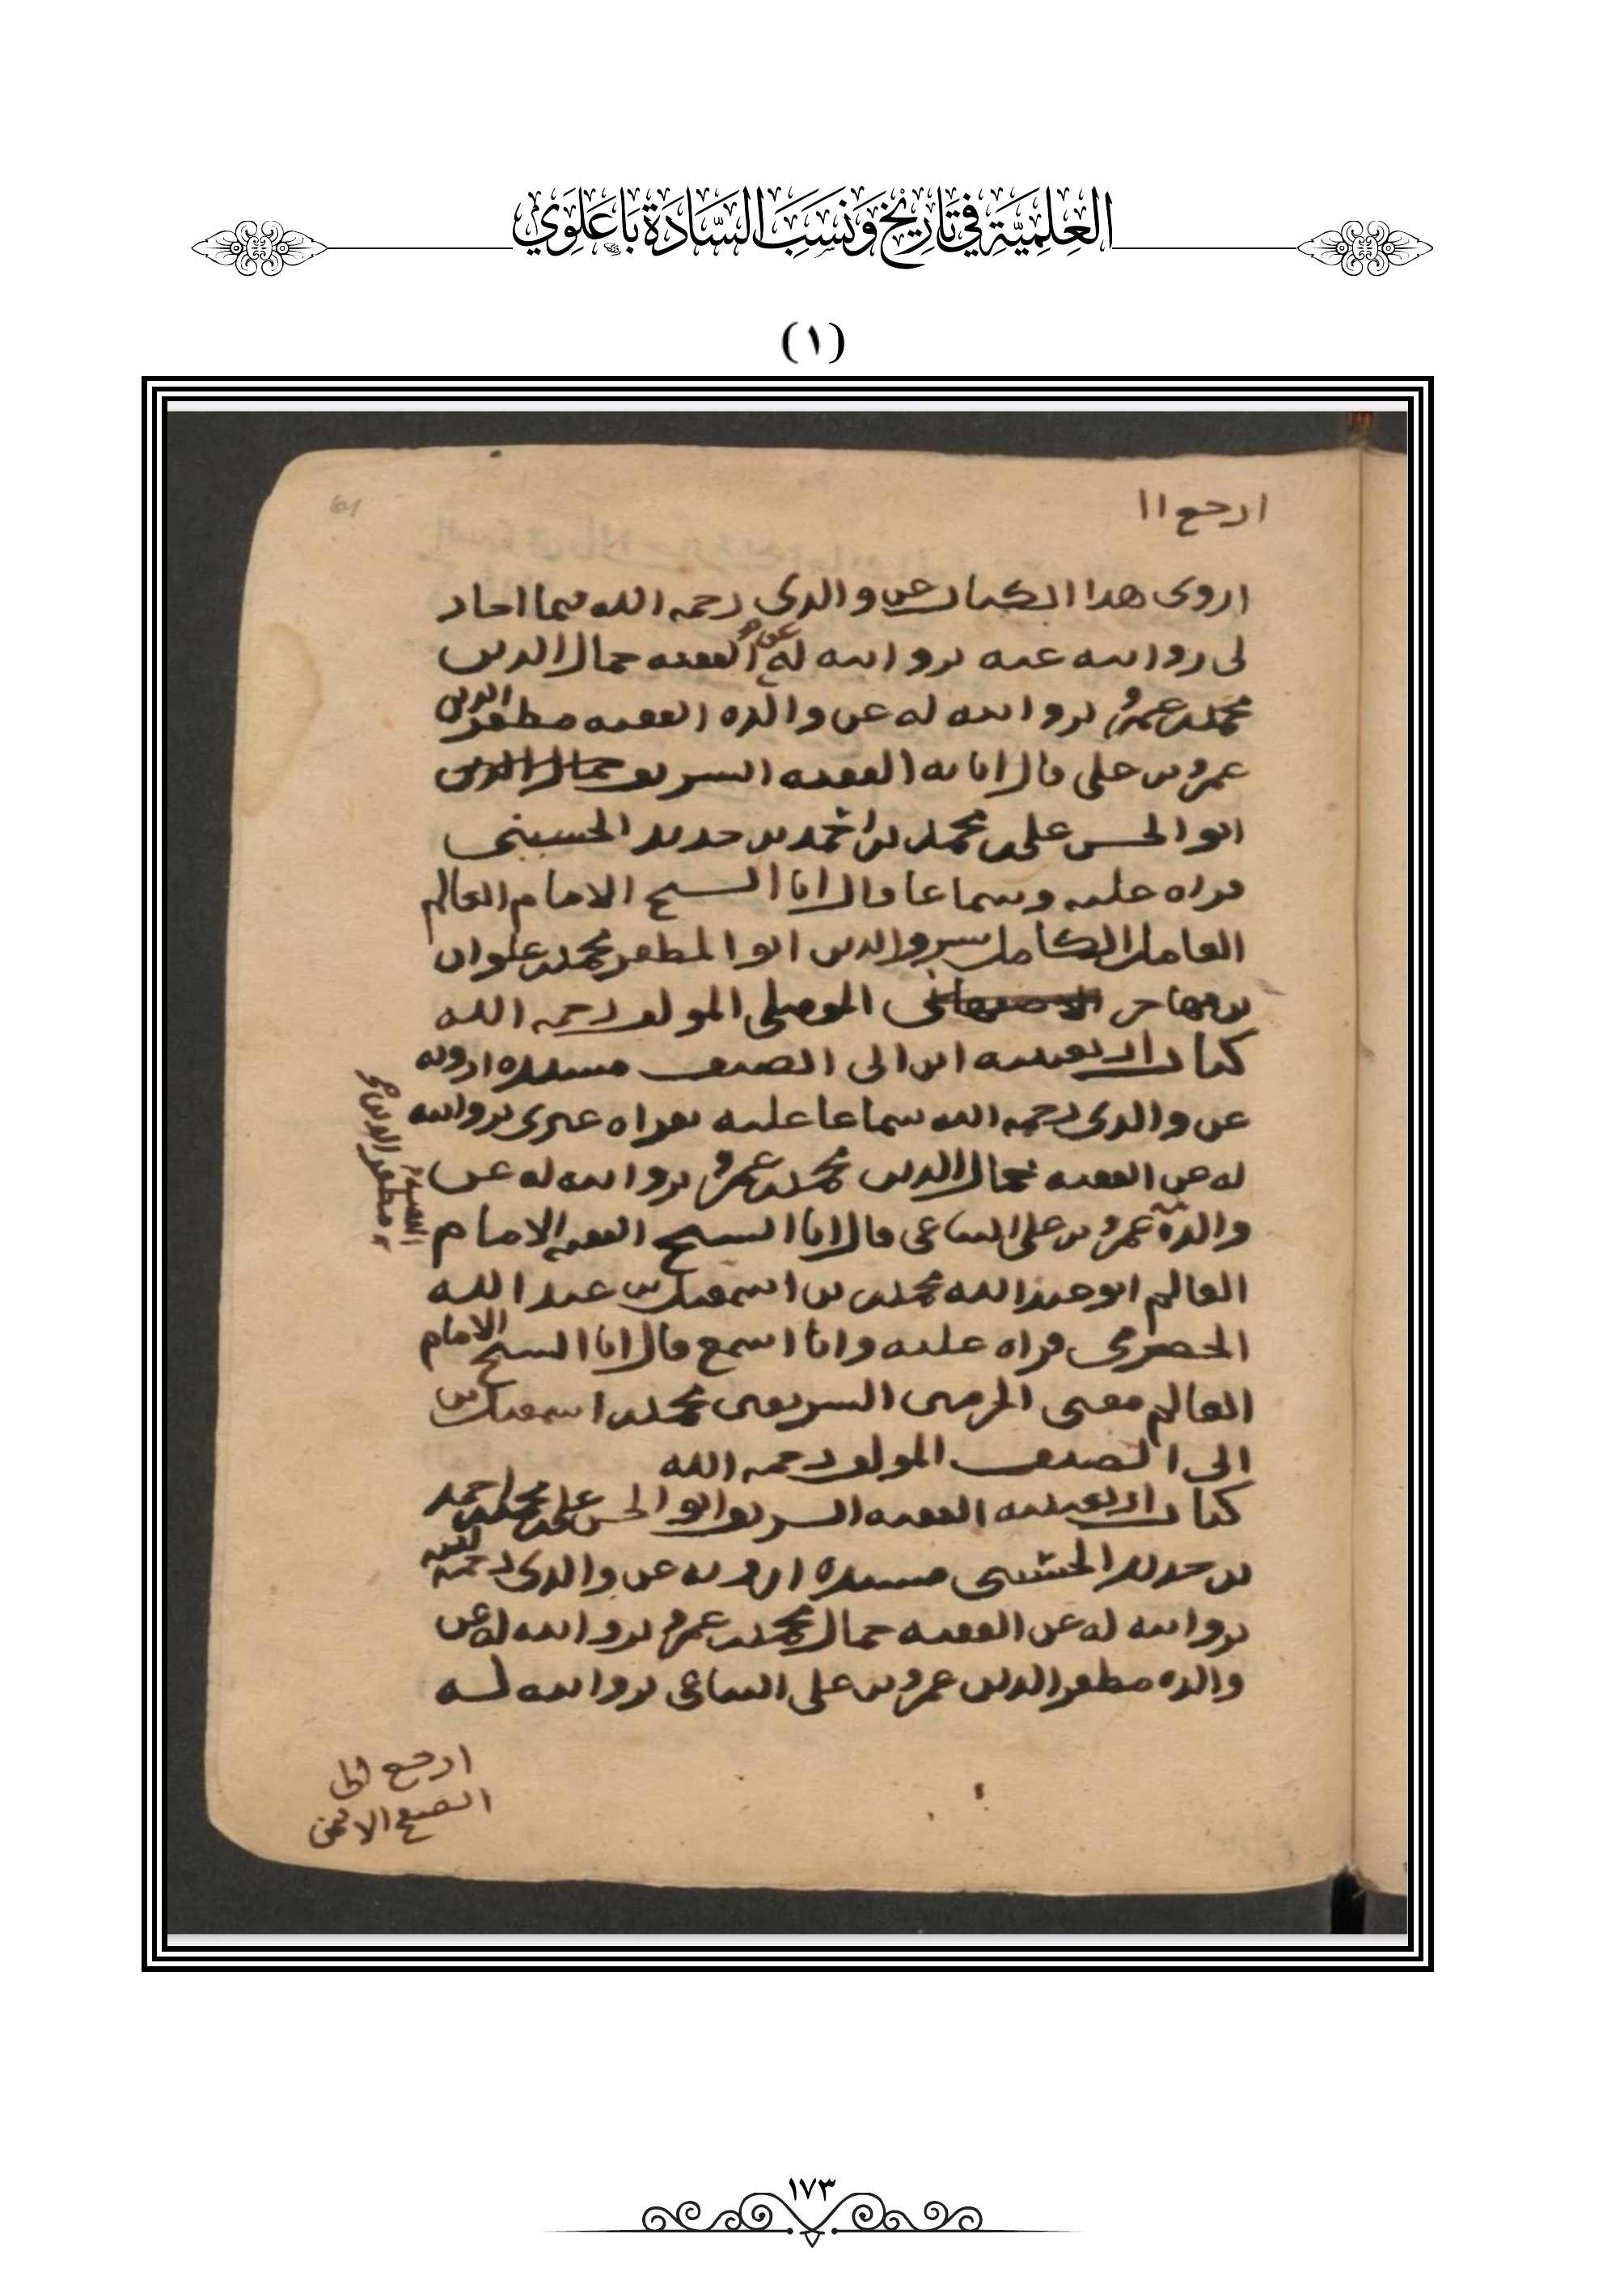 العِلْمِيَّةِ فِي تَارِيْخِ وَنَسَبِ السَّادَةِ بَاعَلَوِي
(١)
ارجع ١١
اروى هدا الكتاب عن والدى رحمه الله فيما اجاز
لى روايته عنه بروايته له عن الفقيه جمال الدين
محمد بن عمرو بروايته له عن والده الفقيه مظفر الدين
عمرو بن على قال انا به الفقيه الشريف جمال الدين
ابو الحسن على بن محمد بن احمد بن حديد الحسينى
قراه عليه وسماعا قال انا الشيخ الامام العالم
العامل الكامل الدين ابو المظفر محمد بن علوان
بن مهاجر الموصلى المولف رحمه الله
كتاب اربعينيه ابن ابى الصيف مسنده ارويه
عن والدى رحمه الله سماعا عليه بقراه غيرى بروايته
له عن الفقيه جمال الدين محمد بن عمرو بروايته له عن
والده عمرو بن على التباعى قال انا الشيخ الفقيه الامام
الفقيه
مظفر الدين
العالم ابو عبد الله محمد بن اسمعيل بن عبد الله
الحضرمى قراه عليه وانا اسمع قال انا الشيخ الامام
العالم مفتى الحرمين الشريفين محمد بن اسمعيل بن
ابى الصيف المولف رحمه الله
كتاب اربعينيه الفقيه الشريف ابو الحسن على بن محمد بن احمد
بن حديد الحسينى مسنده ارويه عن والدى رحمه الله
بروايته له عن الفقيه جمال محمد بن عمرو بروايته له عن
والده مظفر الدين عمرو بن على التباعى بروايته له
ارجع الى
الصفح الايمن
١٧٣